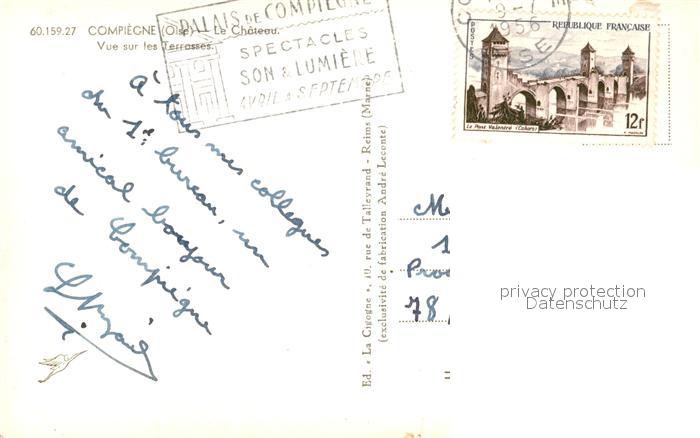 60.159.27 COMPIÈGNE (Oise) - Le Château.
Vue sur les Terrasses.
PALAIS DE COMPIÈGNE
SPECTACLES
SON & LUMIÈRE
AVRIL à SEPTEMBRE
1956
OISE
RÉPUBLIQUE FRANÇAISE
POSTES
Le Pont Valentré (Cahors)
12F
À tous mes collègues
du 1er bureau, un
amical bonjour
de Compiègne
Ed. « La Cigogne », 10, rue de Talleyrand - Reims (Marne)
(exclusivité de fabrication André Leconte)
1
78
privacy protection
Datenschutz